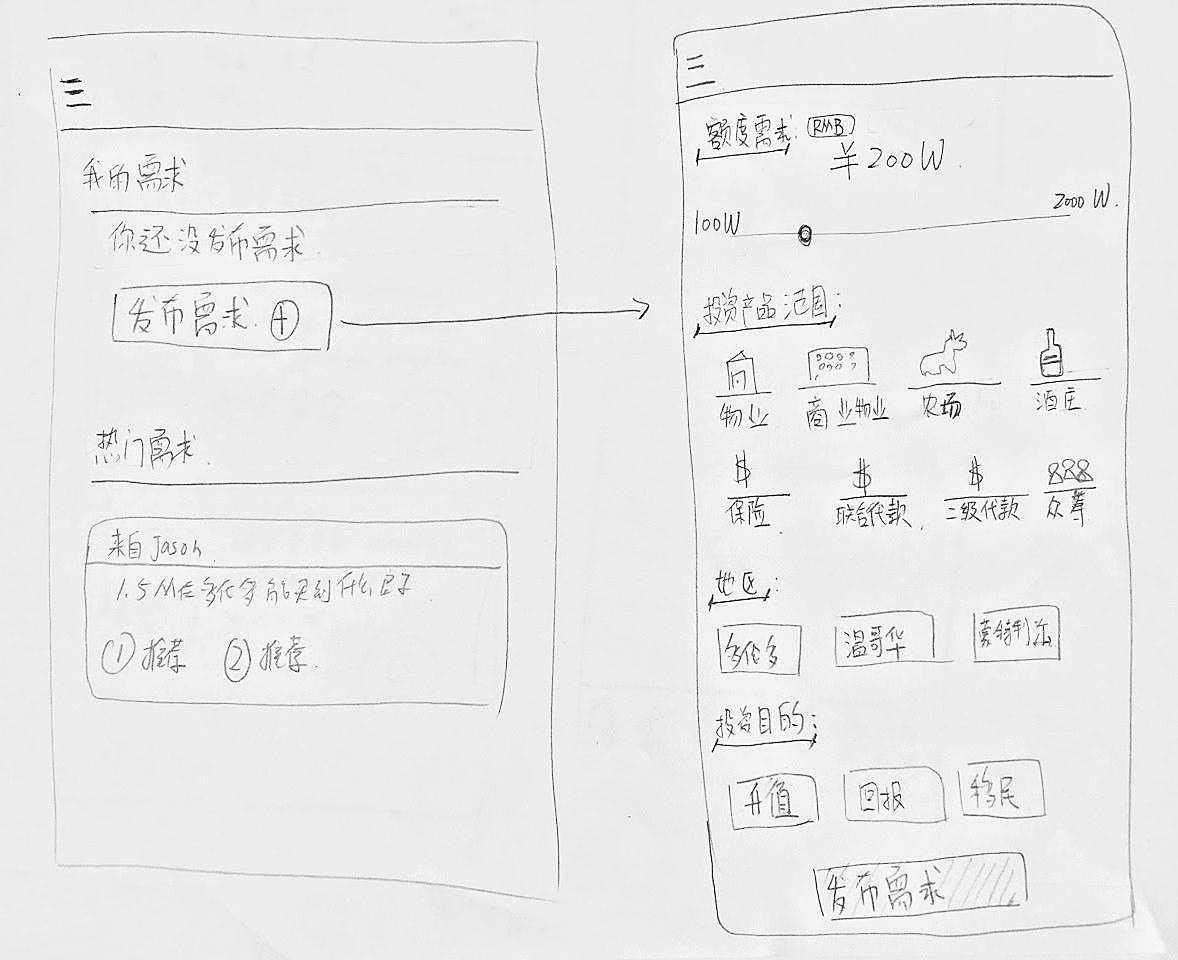 我的需求
你还没发布需求.
发布需求. +
热门需求.
来自 Jason.
1.5M在多伦多能买到什么房子
① 推荐 ② 推荐.
额度需求: RMB
¥200W.
100W 2000W.
投资产品范围:
物业 商业物业 农场 酒庄
$ $ $
保险. 联合代款. 二级代款 众筹
地区:
多伦多 温哥华 蒙特利尔
投资目的:
升值 回报 移民
发布需求